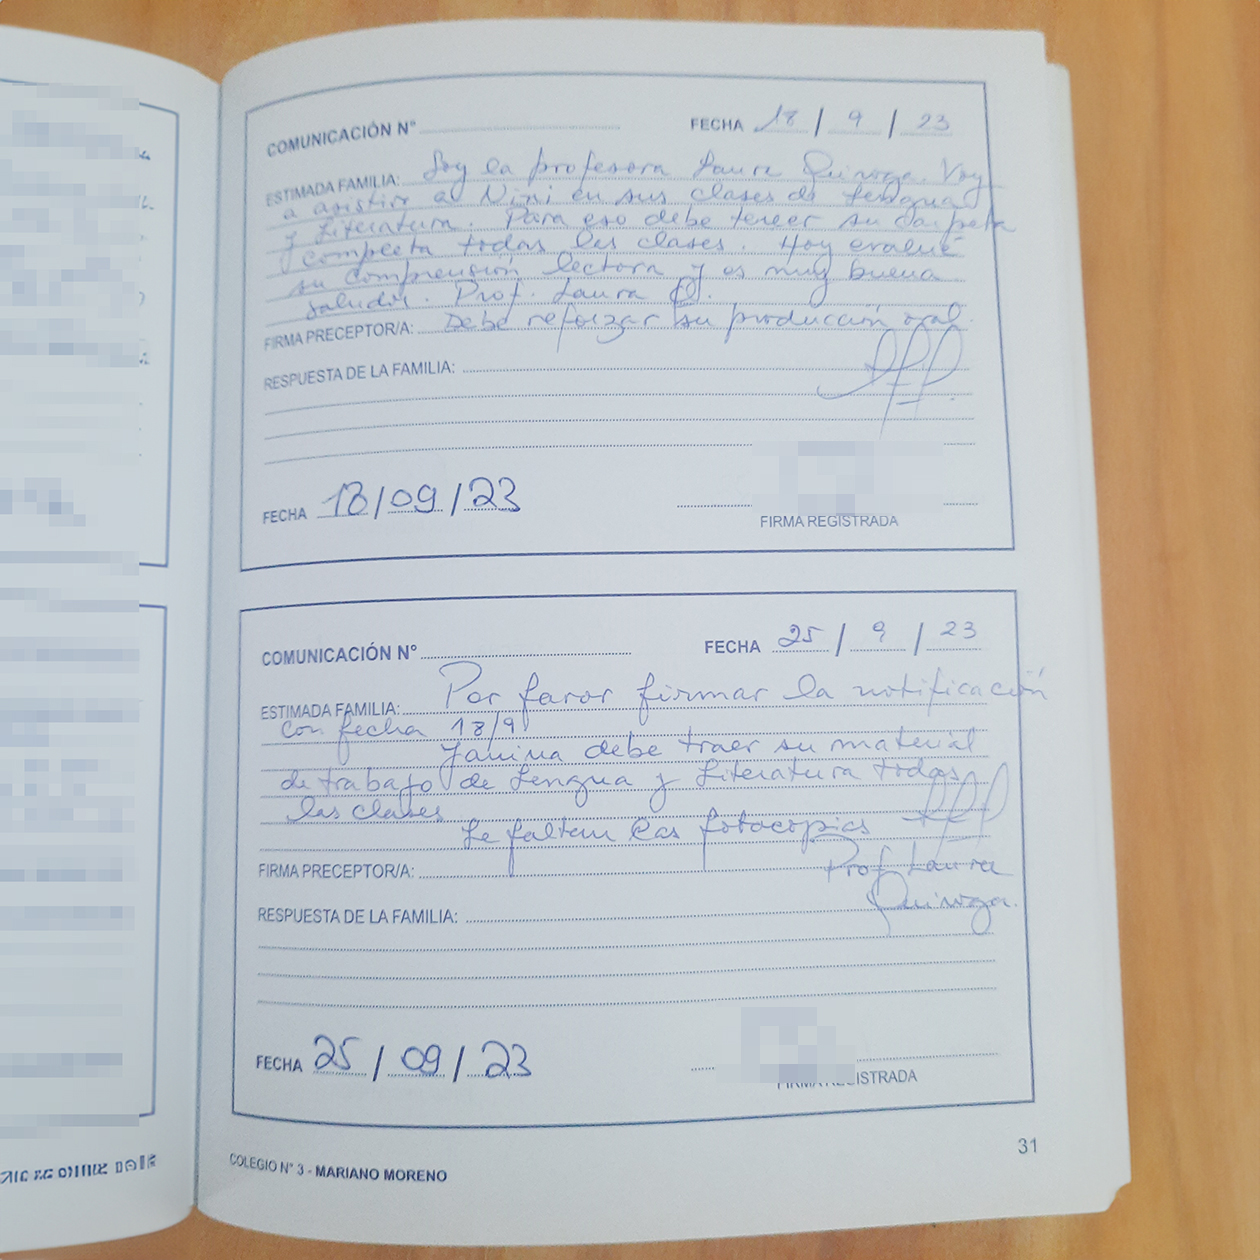 COMUNICACIÓN N° FECHA 18 / 9 / 23
ESTIMADA FAMILIA: Soy la profesora Laura Quiroga. Voy
a asistir a Nini en sus clases de Lengua
y Literatura. Para eso debe tener su carpeta
completa todas las clases. Hoy evalué
su comprensión lectora y es muy buena
saludos. Prof. Laura Q.
FIRMA PRECEPTOR/A: Debe reforzar su producción oral.
RESPUESTA DE LA FAMILIA:
FECHA 18/09/23
FIRMA REGISTRADA
COMUNICACIÓN N° FECHA 25 / 9 / 23
ESTIMADA FAMILIA: Por favor firmar la notificación
con fecha 18/9
Janina debe traer su material
de trabajo de Lengua y Literatura todas
las clases
Le faltan las fotocopias
FIRMA PRECEPTOR/A: Prof. Laura
Quiroga.
RESPUESTA DE LA FAMILIA:
FECHA 25/09/23
FIRMA REGISTRADA
COLEGIO N° 3 - MARIANO MORENO
31